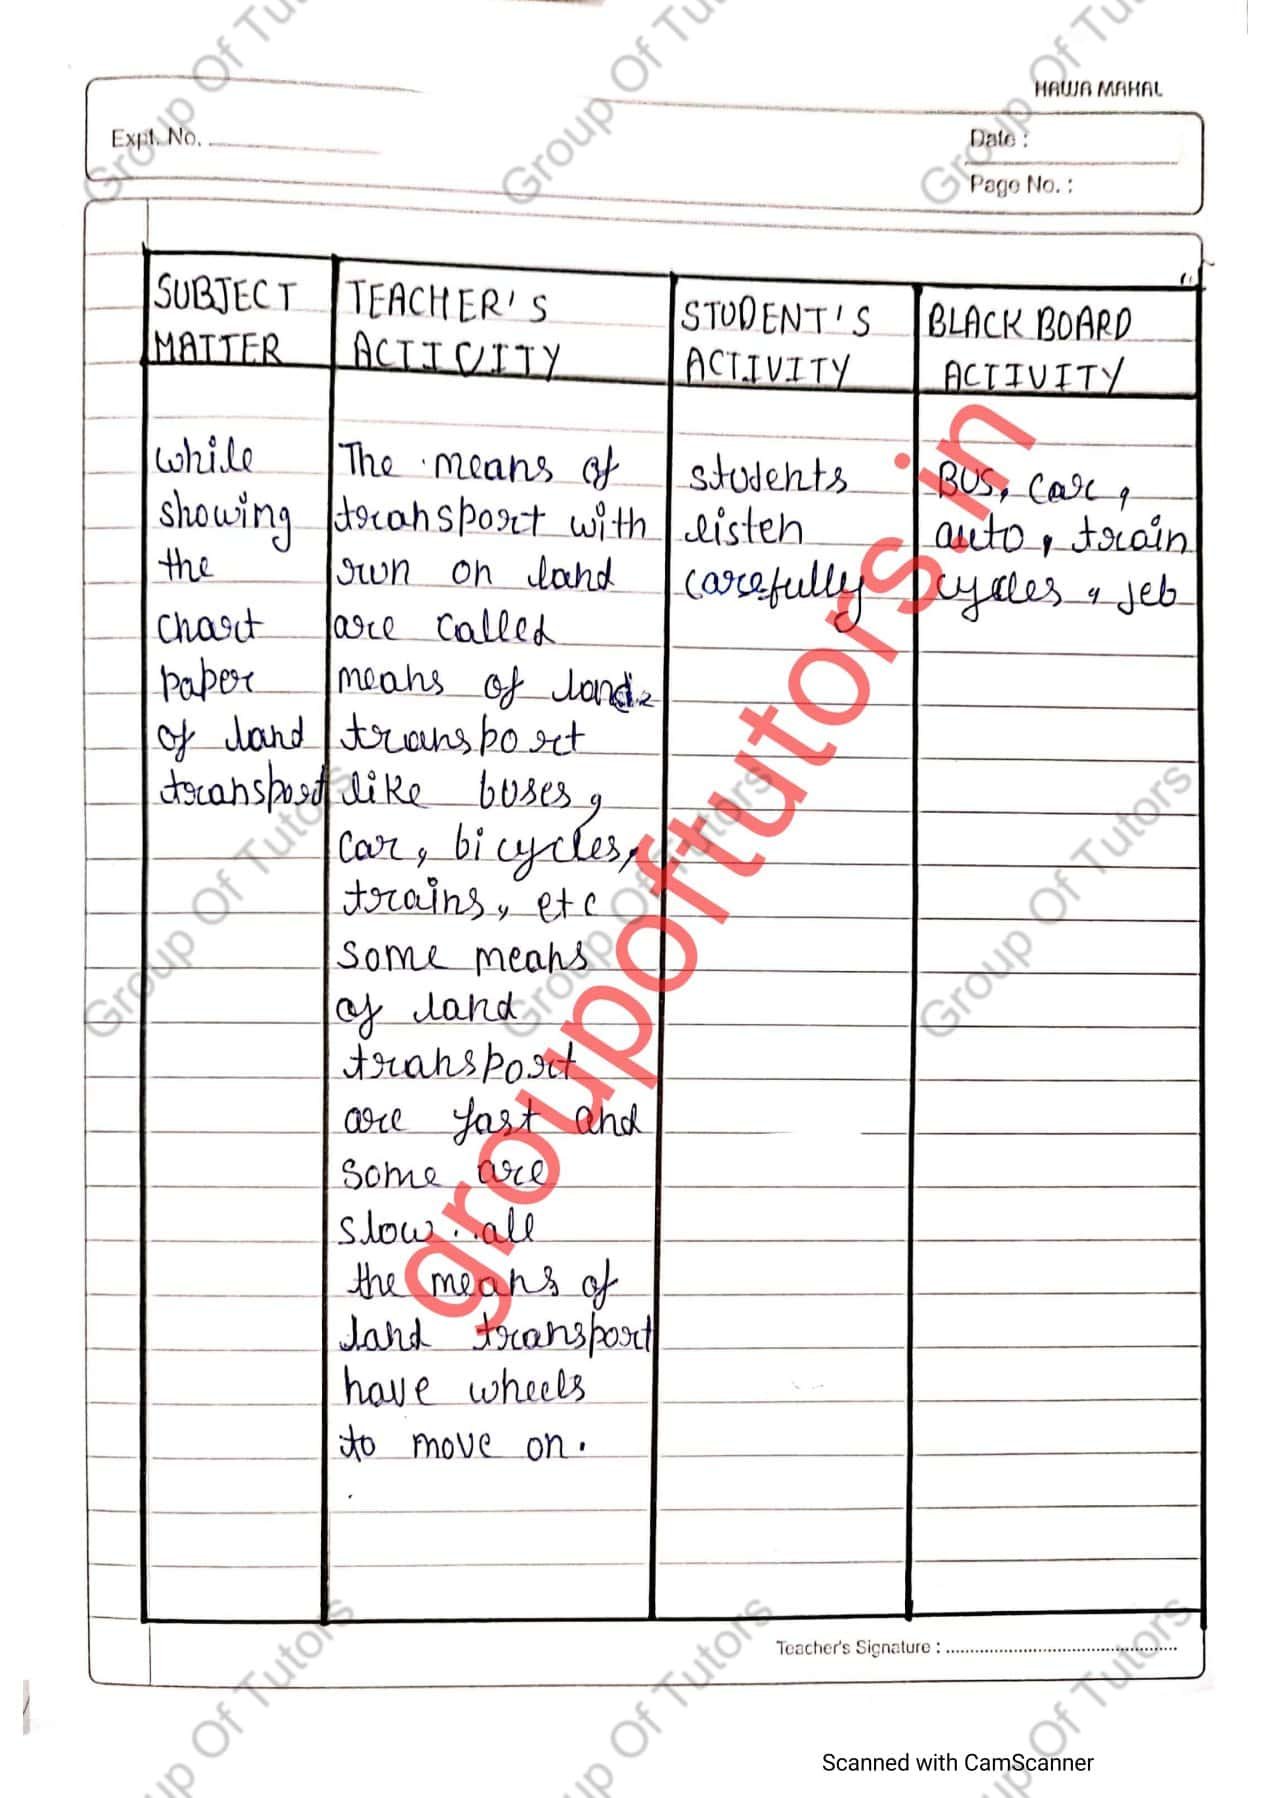 HAWA MAHAL
Expt. No.
Date :
Page No. :
SUBJECT
MATTER
TEACHER'S
ACTIVITY
STUDENT'S
ACTIVITY
BLACK BOARD
ACTIVITY
while
showing
the
chart
paper
of land
transport
The means of
transport with
run on land
are called
means of land
transport
like buses,
car, bicycles,
trains, etc
some means
of land
transport
are fast and
some are
slow. all
the means of
land transport
have wheels
to move on.
students
listen
carefully
BUS, car,
auto, train
cycles, jeb
Teacher's Signature :
groupoftutors.in
Group Of Tutors
Group Of Tutors
Group Of Tutors
Group Of Tutors
Group Of Tutors
Group Of Tutors
Scanned with CamScanner